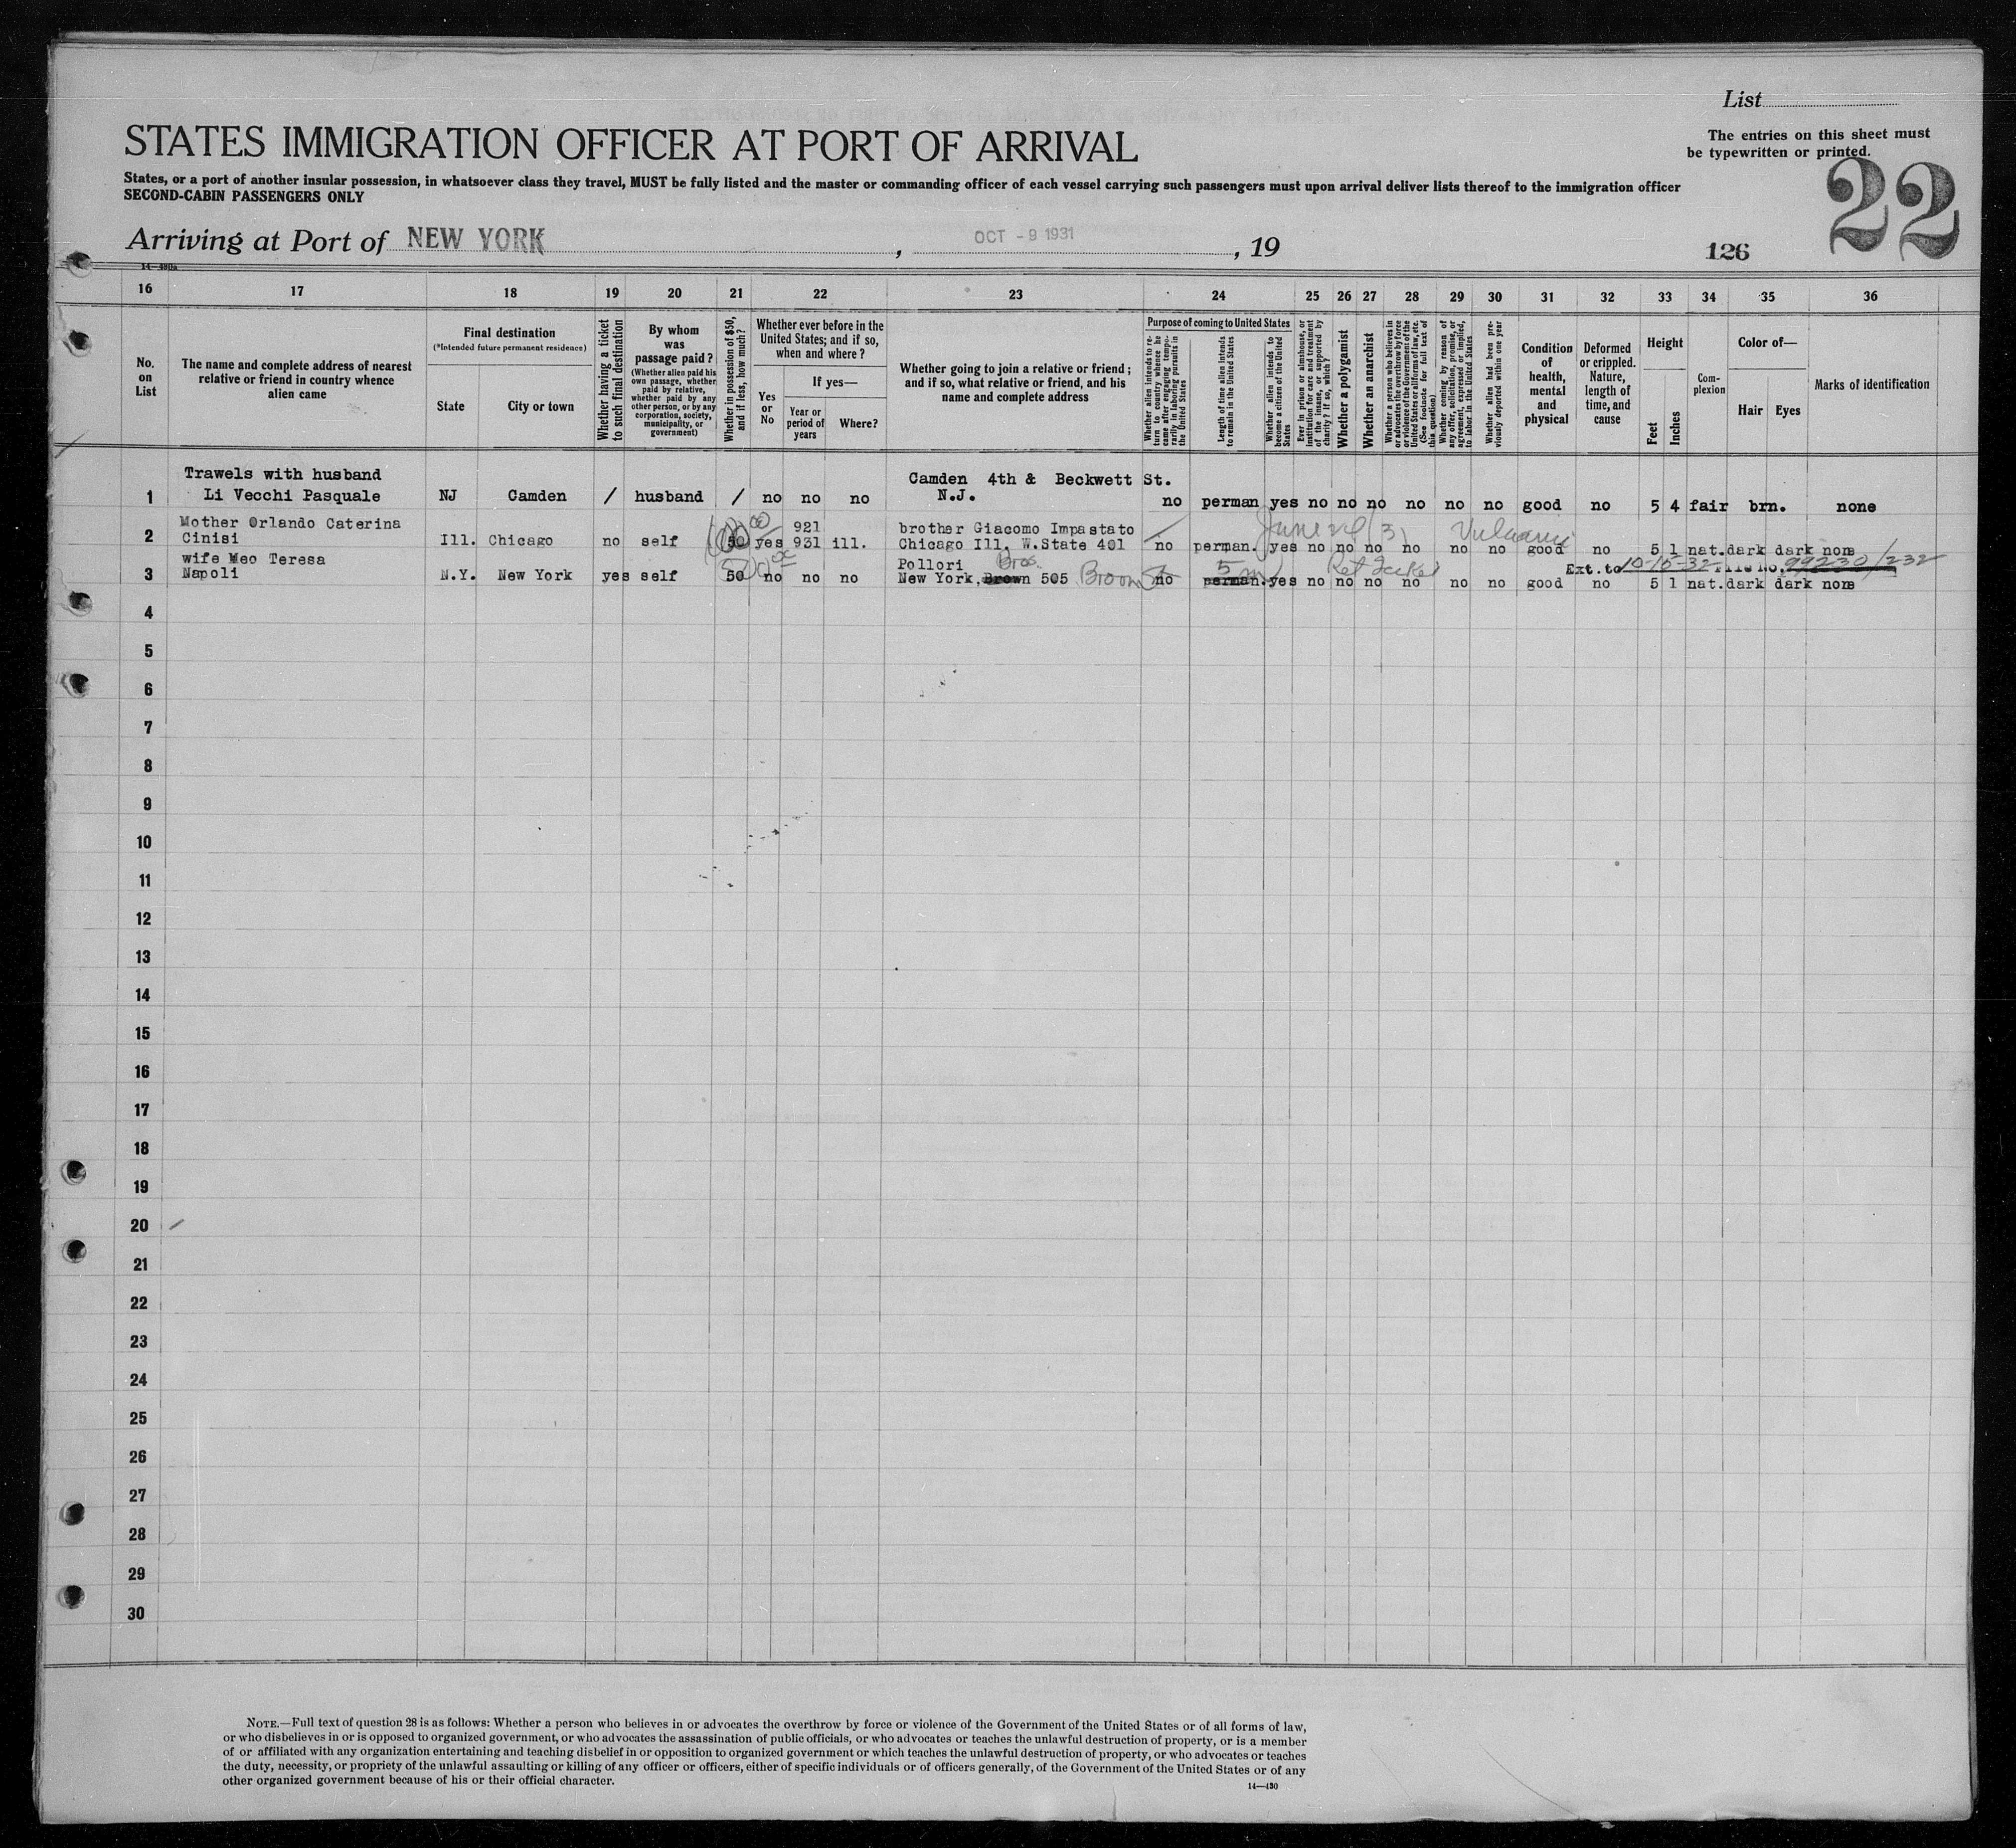 List
STATES IMMIGRATION OFFICER AT PORT OF ARRIVAL
The entries on this sheet must
be typewritten or printed.
States, or a port of another insular possession, in whatsoever class they travel, MUST be fully listed and the master or commanding officer of each vessel carrying such passengers must upon arrival deliver lists thereof to the immigration officer
SECOND-CABIN PASSENGERS ONLY
22
Arriving at Port of NEW YORK, OCT - 9 1931, 19
126
14—430a
16 17 18 19 20 21 22 23 24 25 26 27 28 29 30 31 32 33 34 35 36
No.
on
List
The name and complete address of nearest
relative or friend in country whence
alien came
Final destination
(*Intended future permanent residence)
State
City or town
Whether having a ticket
to such final destination
By whom
was
passage paid?
(Whether alien paid his
own passage, whether
paid by relative,
whether paid by any
other person, or by any
corporation, society,
municipality, or
government)
Whether in possession of $50,
and if less, how much?
Whether ever before in the
United States; and if so,
when and where?
Yes
or
No
If yes—
Year or
period of
years
Where?
Whether going to join a relative or friend;
and if so, what relative or friend, and his
name and complete address
Purpose of coming to United States
Whether alien intends to re-
turn to country whence he
came after engaging tempo-
rarily in laboring pursuits in
the United States
Length of time alien intends
to remain in the United States
Whether alien intends to
become a citizen of the United
States
Ever in prison or almshouse, or
institution for care and treatment
of the insane, or supported by
charity? If so, which?
Whether a polygamist
Whether an anarchist
Whether a person who believes in
or advocates the overthrow by force
or violence of the Government of the
United States or all forms of law, etc.
(See footnote for full text of
this question)
Whether coming by reason of
any offer, solicitation, promise, or
agreement, expressed or implied,
to labor in the United States
Whether alien had been pre-
viously deported within one year
Condition
of
health,
mental
and
physical
Deformed
or crippled.
Nature,
length of
time, and
cause
Height
Feet
Inches
Com-
plexion
Color of—
Hair
Eyes
Marks of identification
Trawels with husband
Camden 4th & Beckwett St.
1 Li Vecchi Pasquale NJ Camden / husband / no no no N.J. no perman yes no no no no no no good no 5 4 fair brn. none
Mother Orlando Caterina 921 brother Giacomo Impastato
2 Cinisi Ill. Chicago no self 50 yes 931 ill. Chicago Ill. W.State 401 no perman. yes no no no no no no good no 5 1 nat. dark dark none
wife Meo Teresa Pollori Bros. 5 m Ext. to 10-15-32 File No. 99230/232
3 Napoli N.Y. New York yes self 50 no no no New York, Brown 505 Broom no perman. yes no no no no no no good no 5 1 nat. dark dark none
4
5
6
7
8
9
10
11
12
13
14
15
16
17
18
19
20
21
22
23
24
25
26
27
28
29
30
NOTE.—Full text of question 28 is as follows: Whether a person who believes in or advocates the overthrow by force or violence of the Government of the United States or of all forms of law,
or who disbelieves in or is opposed to organized government, or who advocates the assassination of public officials, or who advocates or teaches the unlawful destruction of property, or is a member
of or affiliated with any organization entertaining and teaching disbelief in or opposition to organized government or which teaches the unlawful destruction of property, or who advocates or teaches
the duty, necessity, or propriety of the unlawful assaulting or killing of any officer or officers, either of specific individuals or of officers generally, of the Government of the United States or of any
other organized government because of his or their official character.
14—430